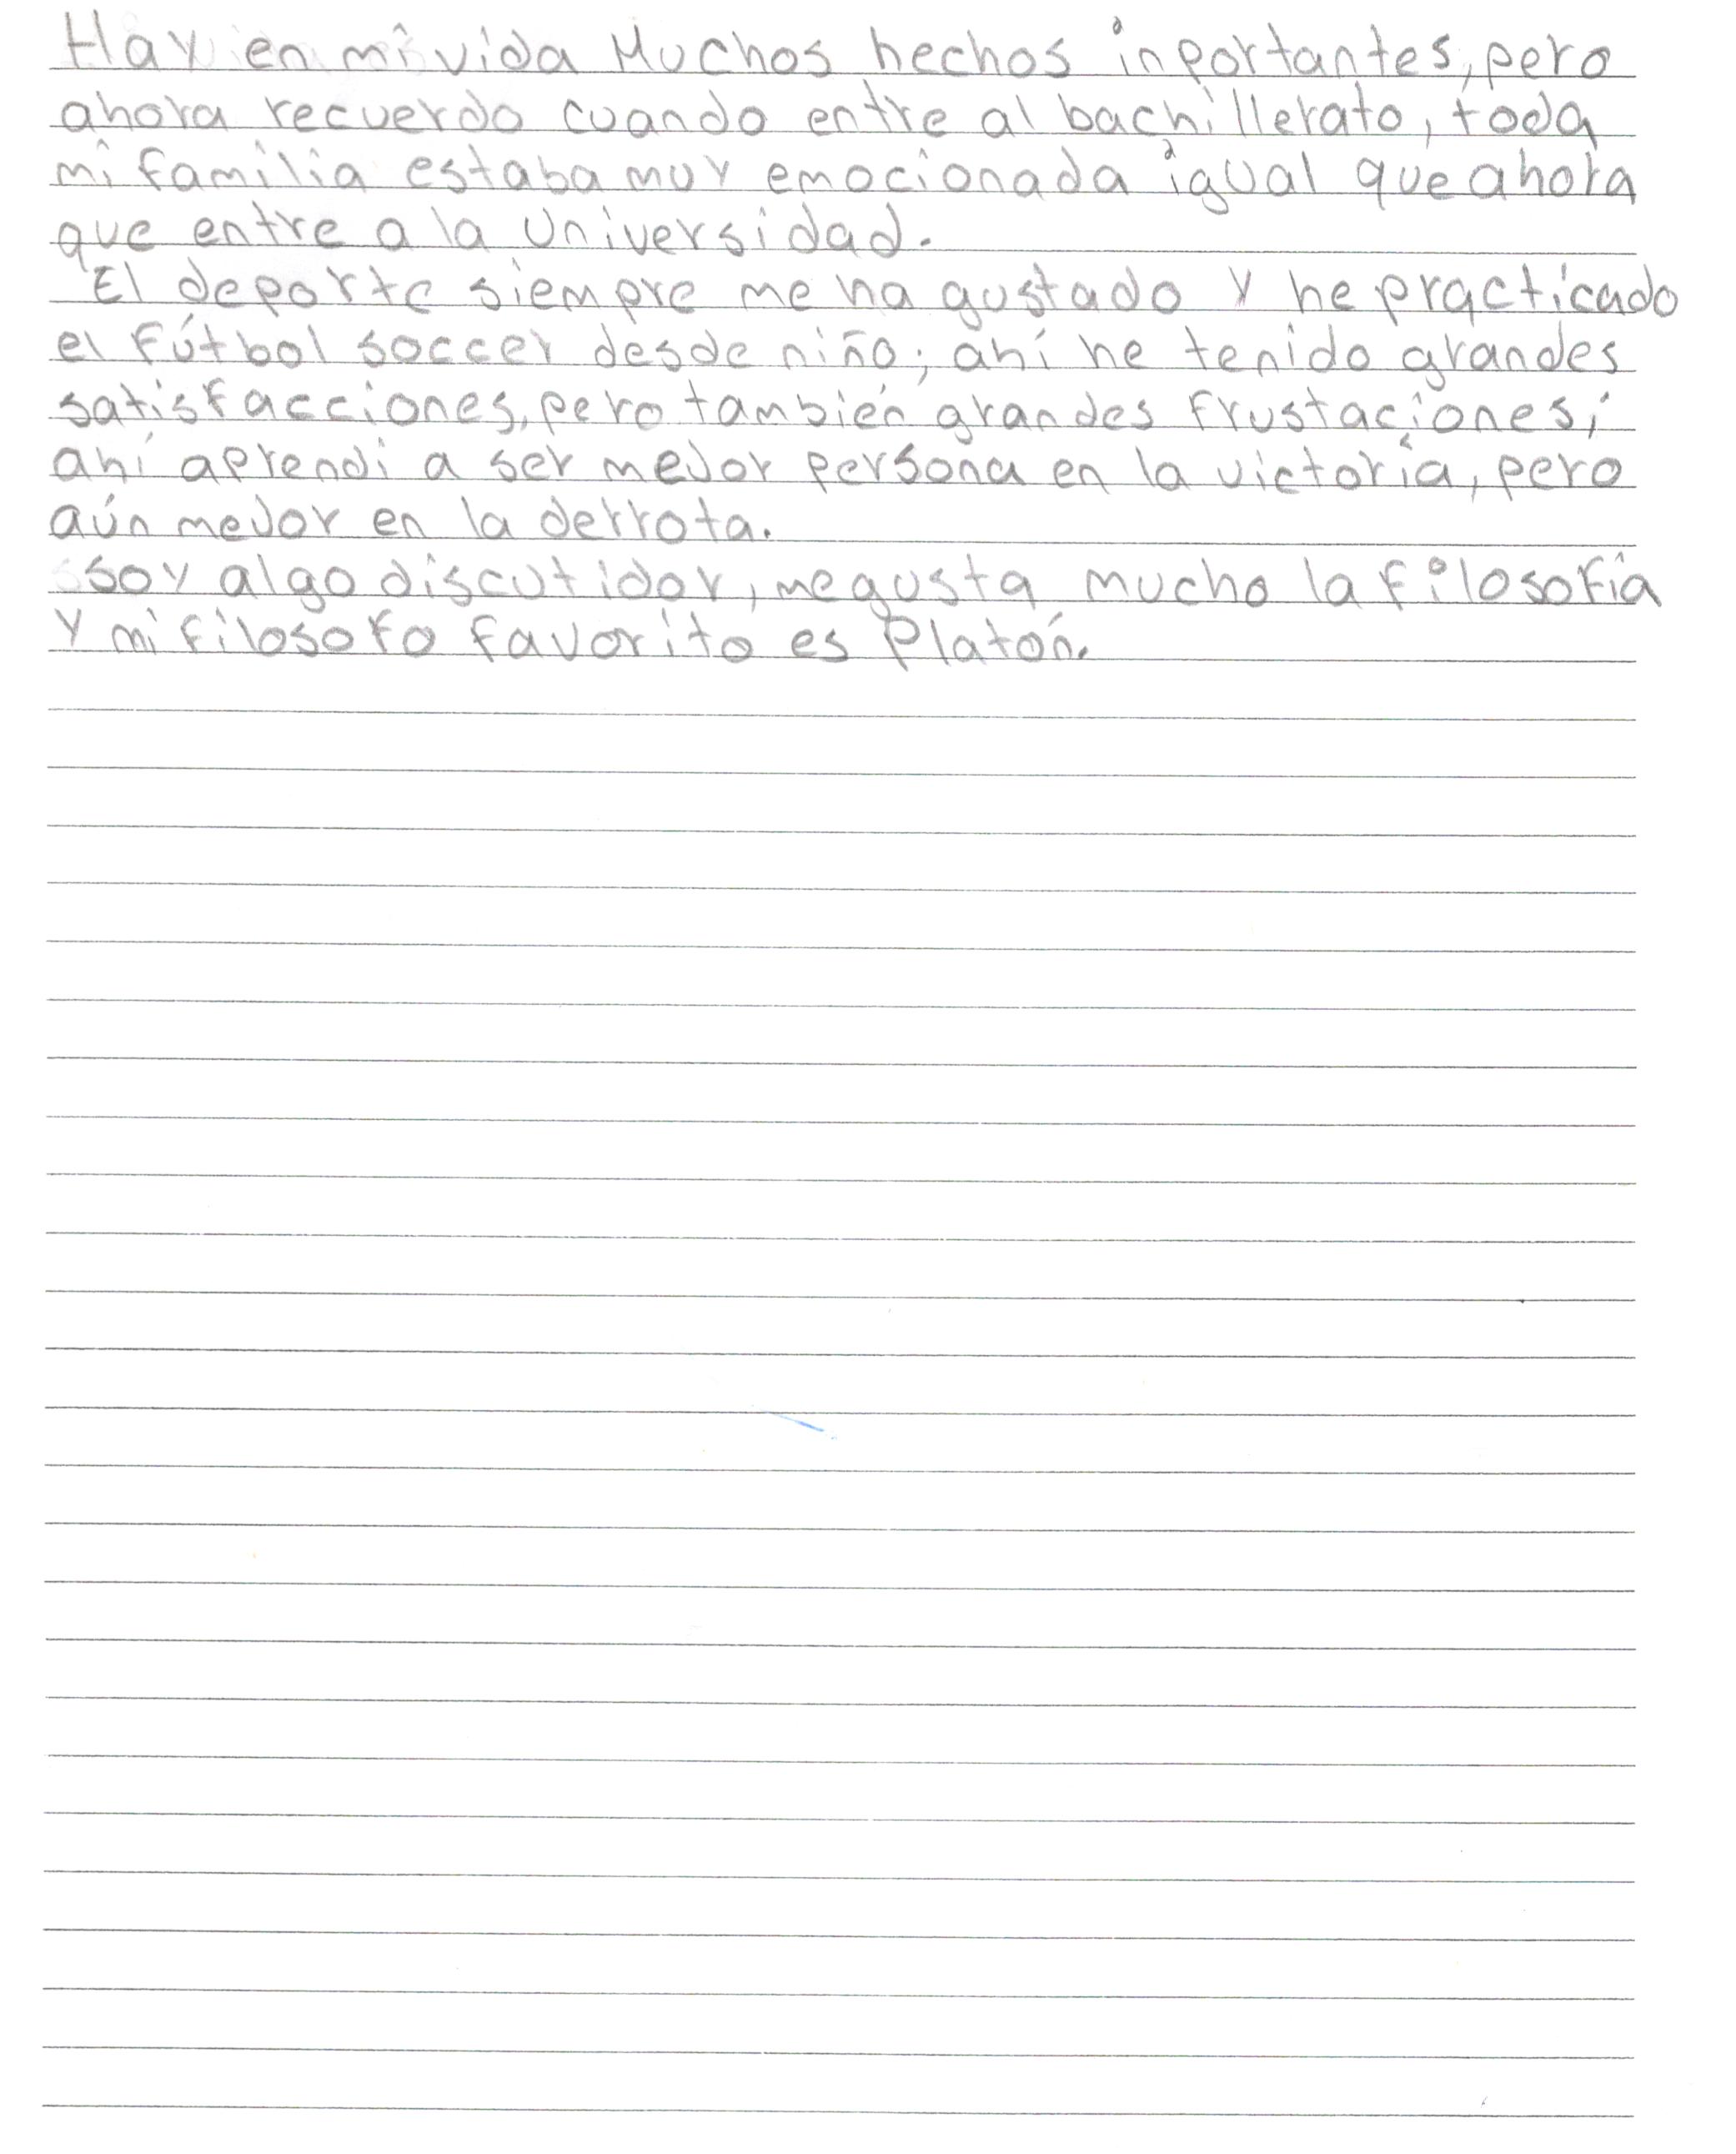 Hay en mi vida Muchos hechos inportantes, pero
ahora recuerdo cuando entre al bachillerato, toda
mi familia estaba muy emocionada igual que ahora
que entre a la Universidad.
El deporte siempre me ha gustado y he practicado
el fútbol soccer desde niño; ahí he tenido grandes
satisfacciones, pero también grandes frustaciones;
ahí aprendi a ser mejor persona en la victoria, pero
aún mejor en la derrota.
soy algo discutidor, me gusta mucho la filosofía
y mi filosofo favorito es Platón.